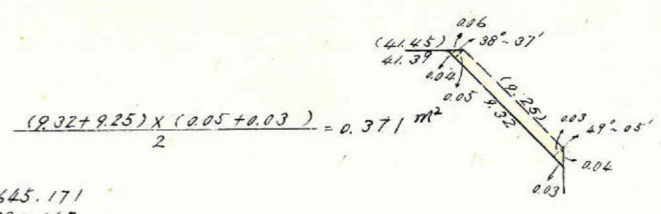 0.06
(41.45)
38°~37'
41.39
0.04
0.05
(9.25)
9.32
0.03
49°~05'
0.04
0.03
(9.32+9.25)×(0.05+0.03 )
2
= 0.371 m²
645.171